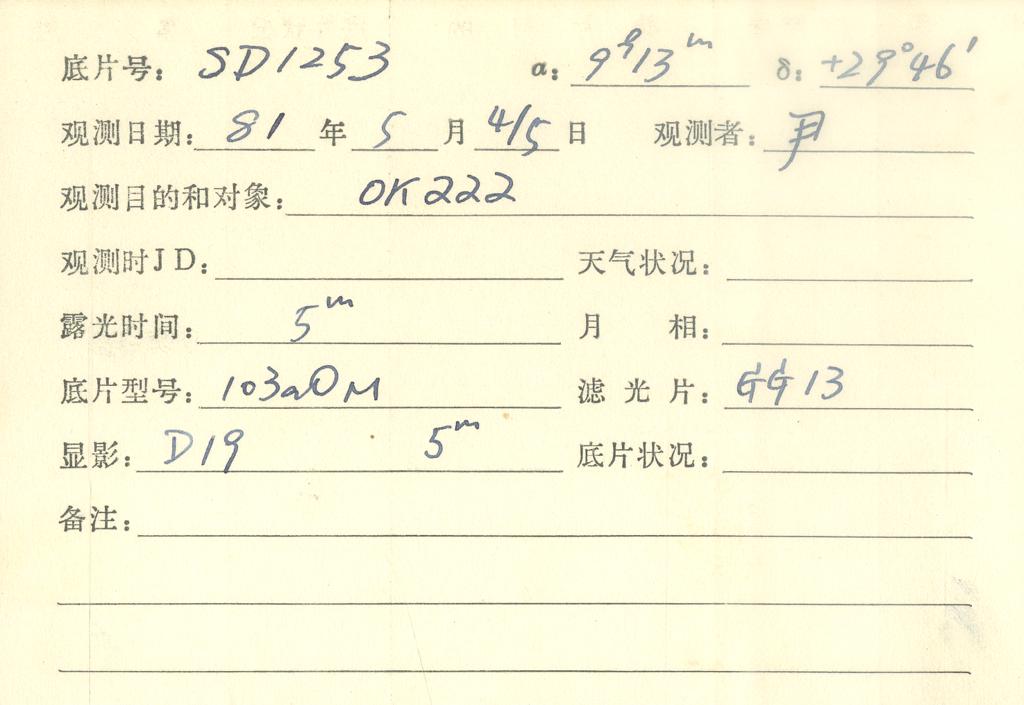 底片号: SD1253 α: 9ʰ13ᵐ δ: +29°46′
观测日期: 81 年 5 月 4/5 日 观测者:
观测目的和对象: OK222
观测时JD: 天气状况:
露光时间: 5ᵐ 月 相:
底片型号: 103aOM 滤光片: GG13
显影: D19 5ᵐ 底片状况:
备注: